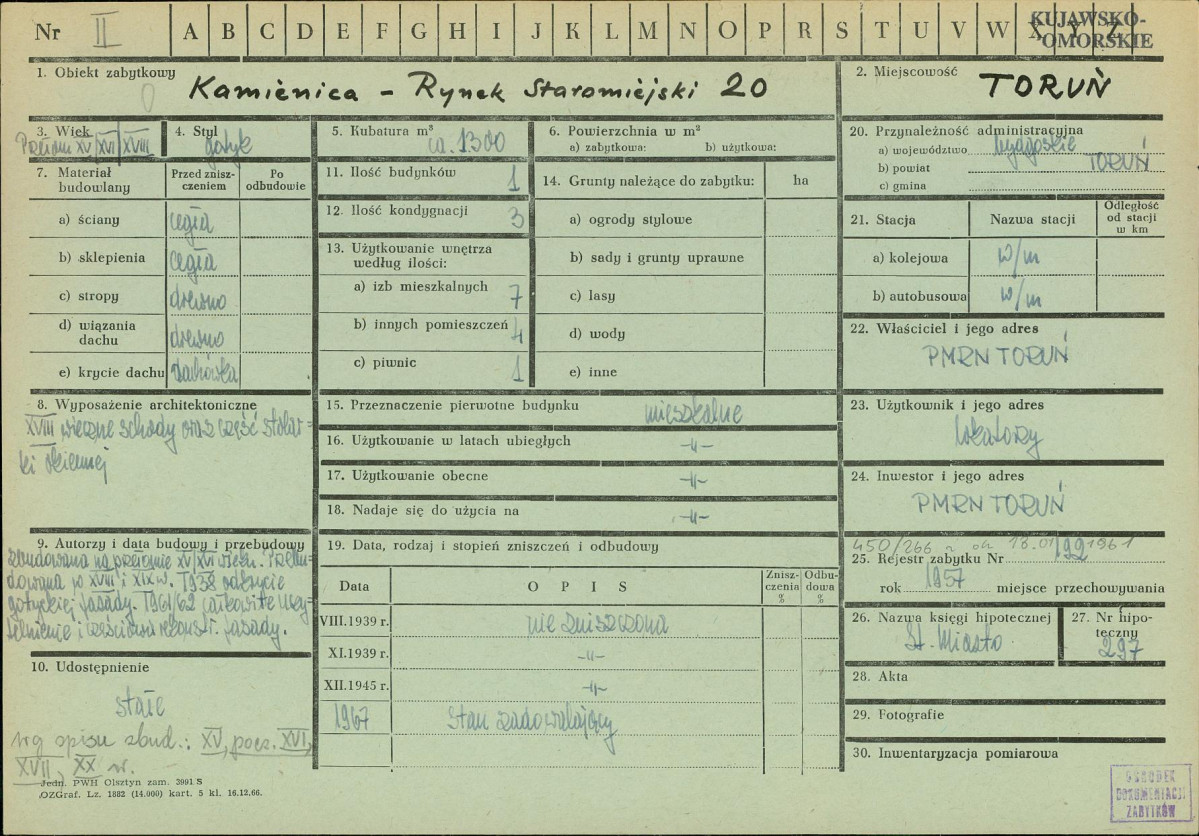 Nr II A B C D E F G H I J K L M N O P R S T U V W X Y Z
KUJAWSKO-
-POMORSKIE
1. Obiekt zabytkowy
Kamienica – Rynek Staromiejski 20
2. Miejscowość
TORUŃ
3. Wiek
Przełom XV/XVI/XVIII
4. Styl
gotyk
5. Kubatura m³
ca. 1300
6. Powierzchnia w m²
a) zabytkowa: b) użytkowa:
7. Materiał budowlany
Przed zniszczeniem
Po odbudowie
a) ściany cegła
b) sklepienia cegła
c) stropy drewno
d) wiązania dachu drewno
e) krycie dachu dachówka
8. Wyposażenie architektoniczne
XVIII wieczne schody oraz część stolar-
ki okiennej
9. Autorzy i data budowy i przebudowy
zbudowana na przełomie XV/XVI wieku. Przebu-
dowana w XVIII i XIX w. 1938 odkrycie
gotyckiej fasady. 1961/62 całkowite
i częściowa rekonstr. fasady.
10. Udostępnienie
stałe
wg opisu zbud.: XV, pocz. XVI,
XVII, XX w.
Jedn. PWH Olsztyn zam. 3991 S
OZGraf. Lz. 1882 (14.000) kart. 5 kl. 16.12.66.
11. Ilość budynków 1
12. Ilość kondygnacji 3
13. Użytkowanie wnętrza
według ilości:
a) izb mieszkalnych 7
b) innych pomieszczeń 4
c) piwnic 1
14. Grunty należące do zabytku: ha
a) ogrody stylowe
b) sady i grunty uprawne
c) lasy
d) wody
e) inne
15. Przeznaczenie pierwotne budynku mieszkalne
16. Użytkowanie w latach ubiegłych -"-
17. Użytkowanie obecne -"-
18. Nadaje się do użycia na -"-
19. Data, rodzaj i stopień zniszczeń i odbudowy
Data OPIS Zniszczenia % Odbudowa %
VIII.1939 r. nie zniszczona
XI.1939 r. -"-
XII.1945 r. -"-
1967 Stan zadowalający
20. Przynależność administracyjna
a) województwo bydgoskie
b) powiat TORUŃ
c) gmina
21. Stacja Nazwa stacji Odległość od stacji w km
a) kolejowa w/m
b) autobusowa w/m
22. Właściciel i jego adres
PMRN TORUŃ
23. Użytkownik i jego adres
lokatorzy
24. Inwestor i jego adres
PMRN TORUŃ
450/266
25. Rejestr zabytku Nr 192
rok 1957 miejsce przechowywania
26. Nazwa księgi hipotecznej
St. Miasto
27. Nr hipo-
teczny
297
28. Akta
29. Fotografie
30. Inwentaryzacja pomiarowa
OŚRODEK
DOKUMENTACJI
ZABYTKÓW